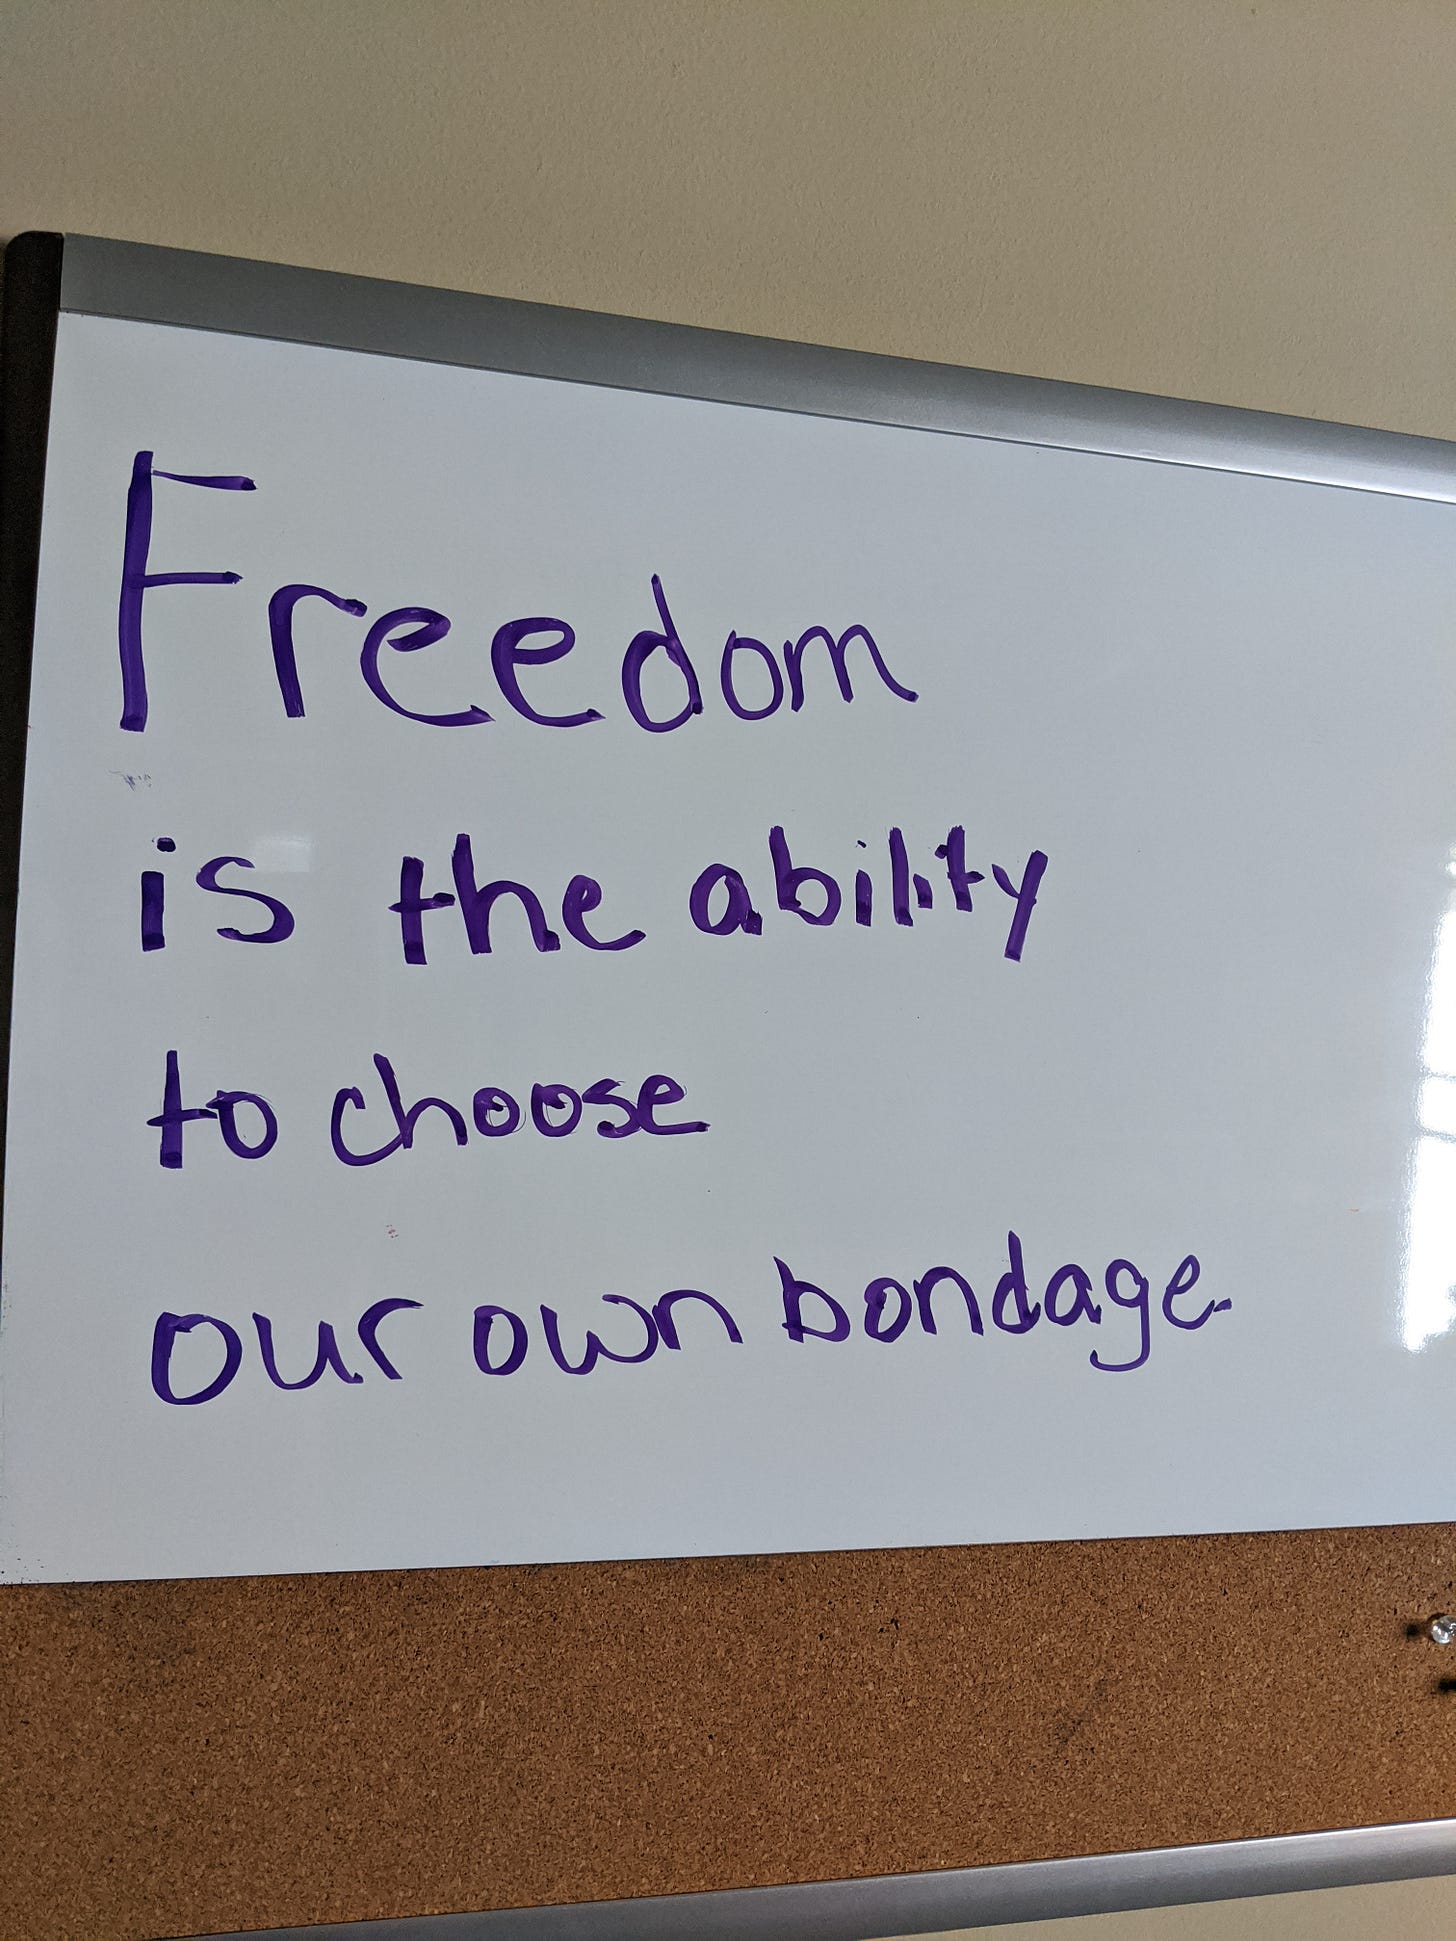 Freedom
is the ability
to choose
our own bondage.